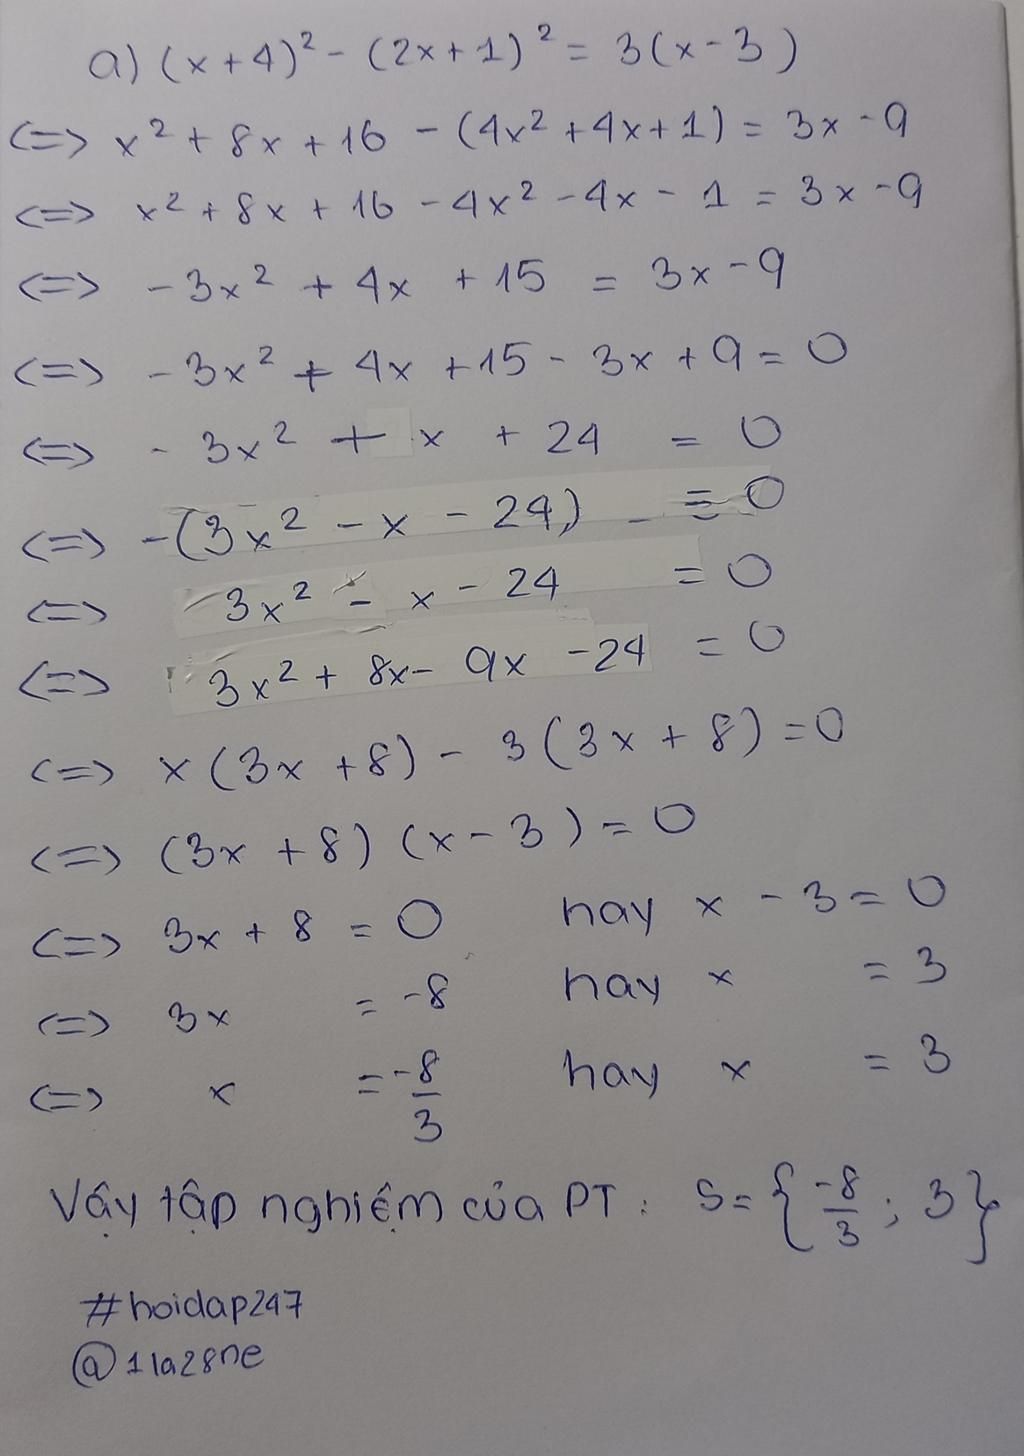 a) (x+4)² - (2x+1)² = 3(x-3)
<=> x² + 8x + 16 - (4x² + 4x + 1) = 3x - 9
<=> x² + 8x + 16 - 4x² - 4x - 1 = 3x - 9
<=> - 3x² + 4x + 15 = 3x - 9
<=> - 3x² + 4x + 15 - 3x + 9 = 0
<=> - 3x² + x + 24 = 0
<=> -(3x² - x - 24) = 0
<=> 3x² - x - 24 = 0
<=> 3x² + 8x - 9x - 24 = 0
<=> x(3x + 8) - 3(3x + 8) = 0
<=> (3x + 8)(x - 3) = 0
<=> 3x + 8 = 0 hay x - 3 = 0
<=> 3x = -8 hay x = 3
<=> x = -8/3 hay x = 3
Vậy tập nghiệm của PT : S = {-8/3 ; 3}
#hoidap247
@1la28ne